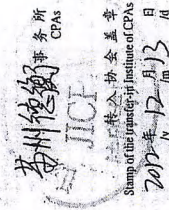 苏州德衡 事务所
CPAs
JICP
转入协会盖章
Stamp of the transfer-in Institute of CPAs
2012年12月13日
/y /m /d